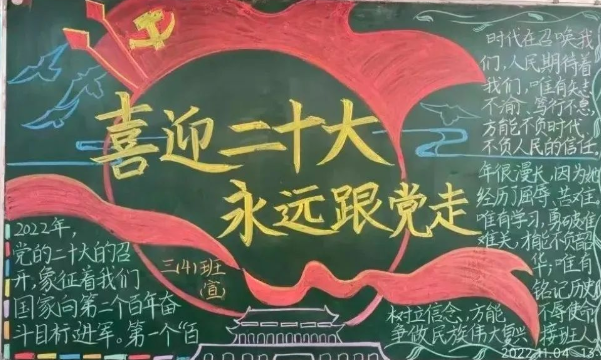 喜迎二十大
永远跟党走
三(4)班
宣
2022年,
党的二十大的召
开,象征着我们
国家向第二个百年奋
斗目标进军。第一个“百
时代在召唤我
们,人民期待着
我们,唯有矢志
不渝、笃行不怠,
方能不负时代,
不负人民的信任,
年很漫长,因为她
经历了屈辱、苦难,
唯有学习,勇破难
难关,才能不负韶
华;唯有
铭记历史
树立信念,方能 不辱使命
争做民族伟大复兴 接班人